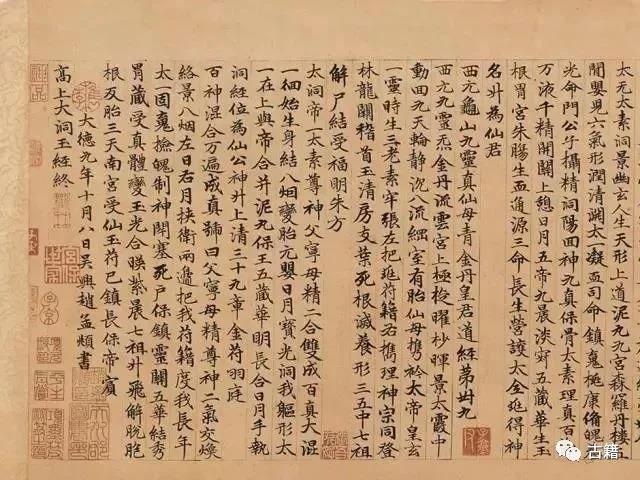 上道泥九九宮森羅丹樓
閒嬰兒六氣形潤清淵太一凝而司命鎮鬼梃康脩魄
光命門公子攝精洞陽回神九真保骨太素理真百
万液千精開關上憩日月五帝九晨淡寂五藏華生玉
根胃宮朱腸生血通源三命長生營護太全延得神
名升為仙君
西元龜山九靈真仙母青金丹皇君道經第卅九
西元九靈炁金丹流雲宮上極梭曜杪暉景太霞中
動回九天輪静沉八流細室有胎仙母携於太帝皇玄
一靈時生三老素牢張左把延符籍右携理神宗同登
林龍關稽首玉清房支葉死根滅養形三五中七祖
解尸結受福明朱方
太洞帝一太素尊神父寧母精二合雙成百真大混
一徊始生身結八烟變胎元嬰日月寶光洞我軀形太
一在上與帝合并泥九保王五藏華明長合日月手執
洞經位為仙公神升上清三十九章金符羽庭
百神混合万遍成真號曰父寧母精尊神二氣交煥
絡景八烟左日右月挟衛兩邊把我符籍度我長年
太一固鬼檢魄制神開塞死戸保鎮靈關五華結秀
胃藏受真體變玉光合暎紫晨七祖升飛解脱胞
根及胎三天南宮受仙玉符已鎮長保帝賓
大德九年十月八日吳興趙孟頫書
高上大洞玉經終
古籍